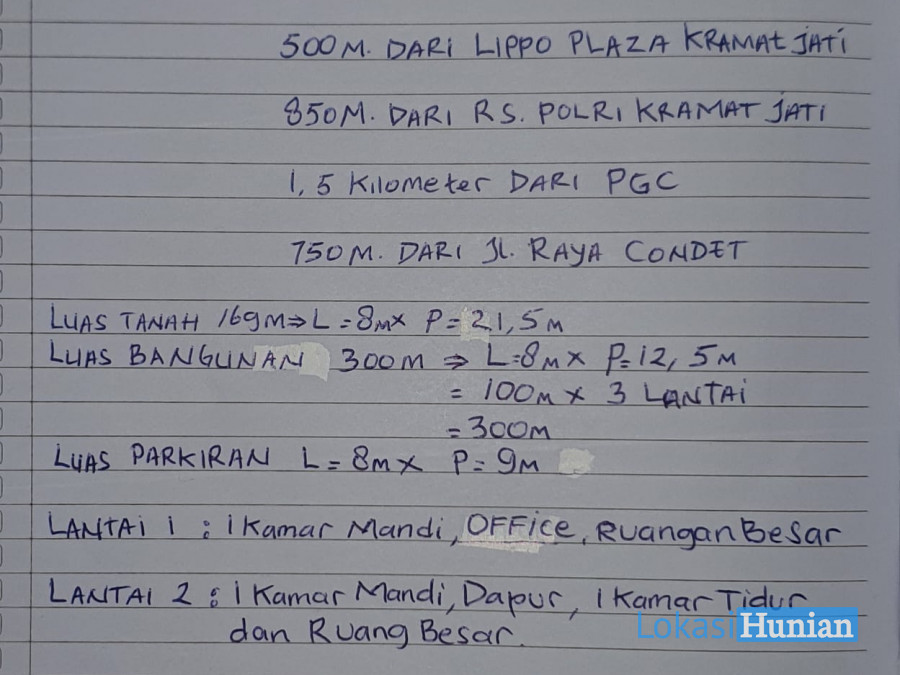 500M. DARI LIPPO PLAZA KRAMAT JATI
850M. DARI RS. POLRI KRAMAT JATI
1,5 Kilometer DARI PGC
750M. DARI JL. RAYA CONDET
LUAS TANAH 169M⇒L=8M× P=21,5M
LUAS BANGUNAN 300M ⇒ L=8M× P=12,5M
= 100M × 3 LANTAI
=300M
LUAS PARKIRAN L=8M× P=9M
LANTAI 1 : 1 Kamar Mandi, OFFice, Ruangan Besar
LANTAI 2 : 1 Kamar Mandi, Dapur, 1 Kamar Tidur
dan Ruang Besar.
Lokasi Hunian